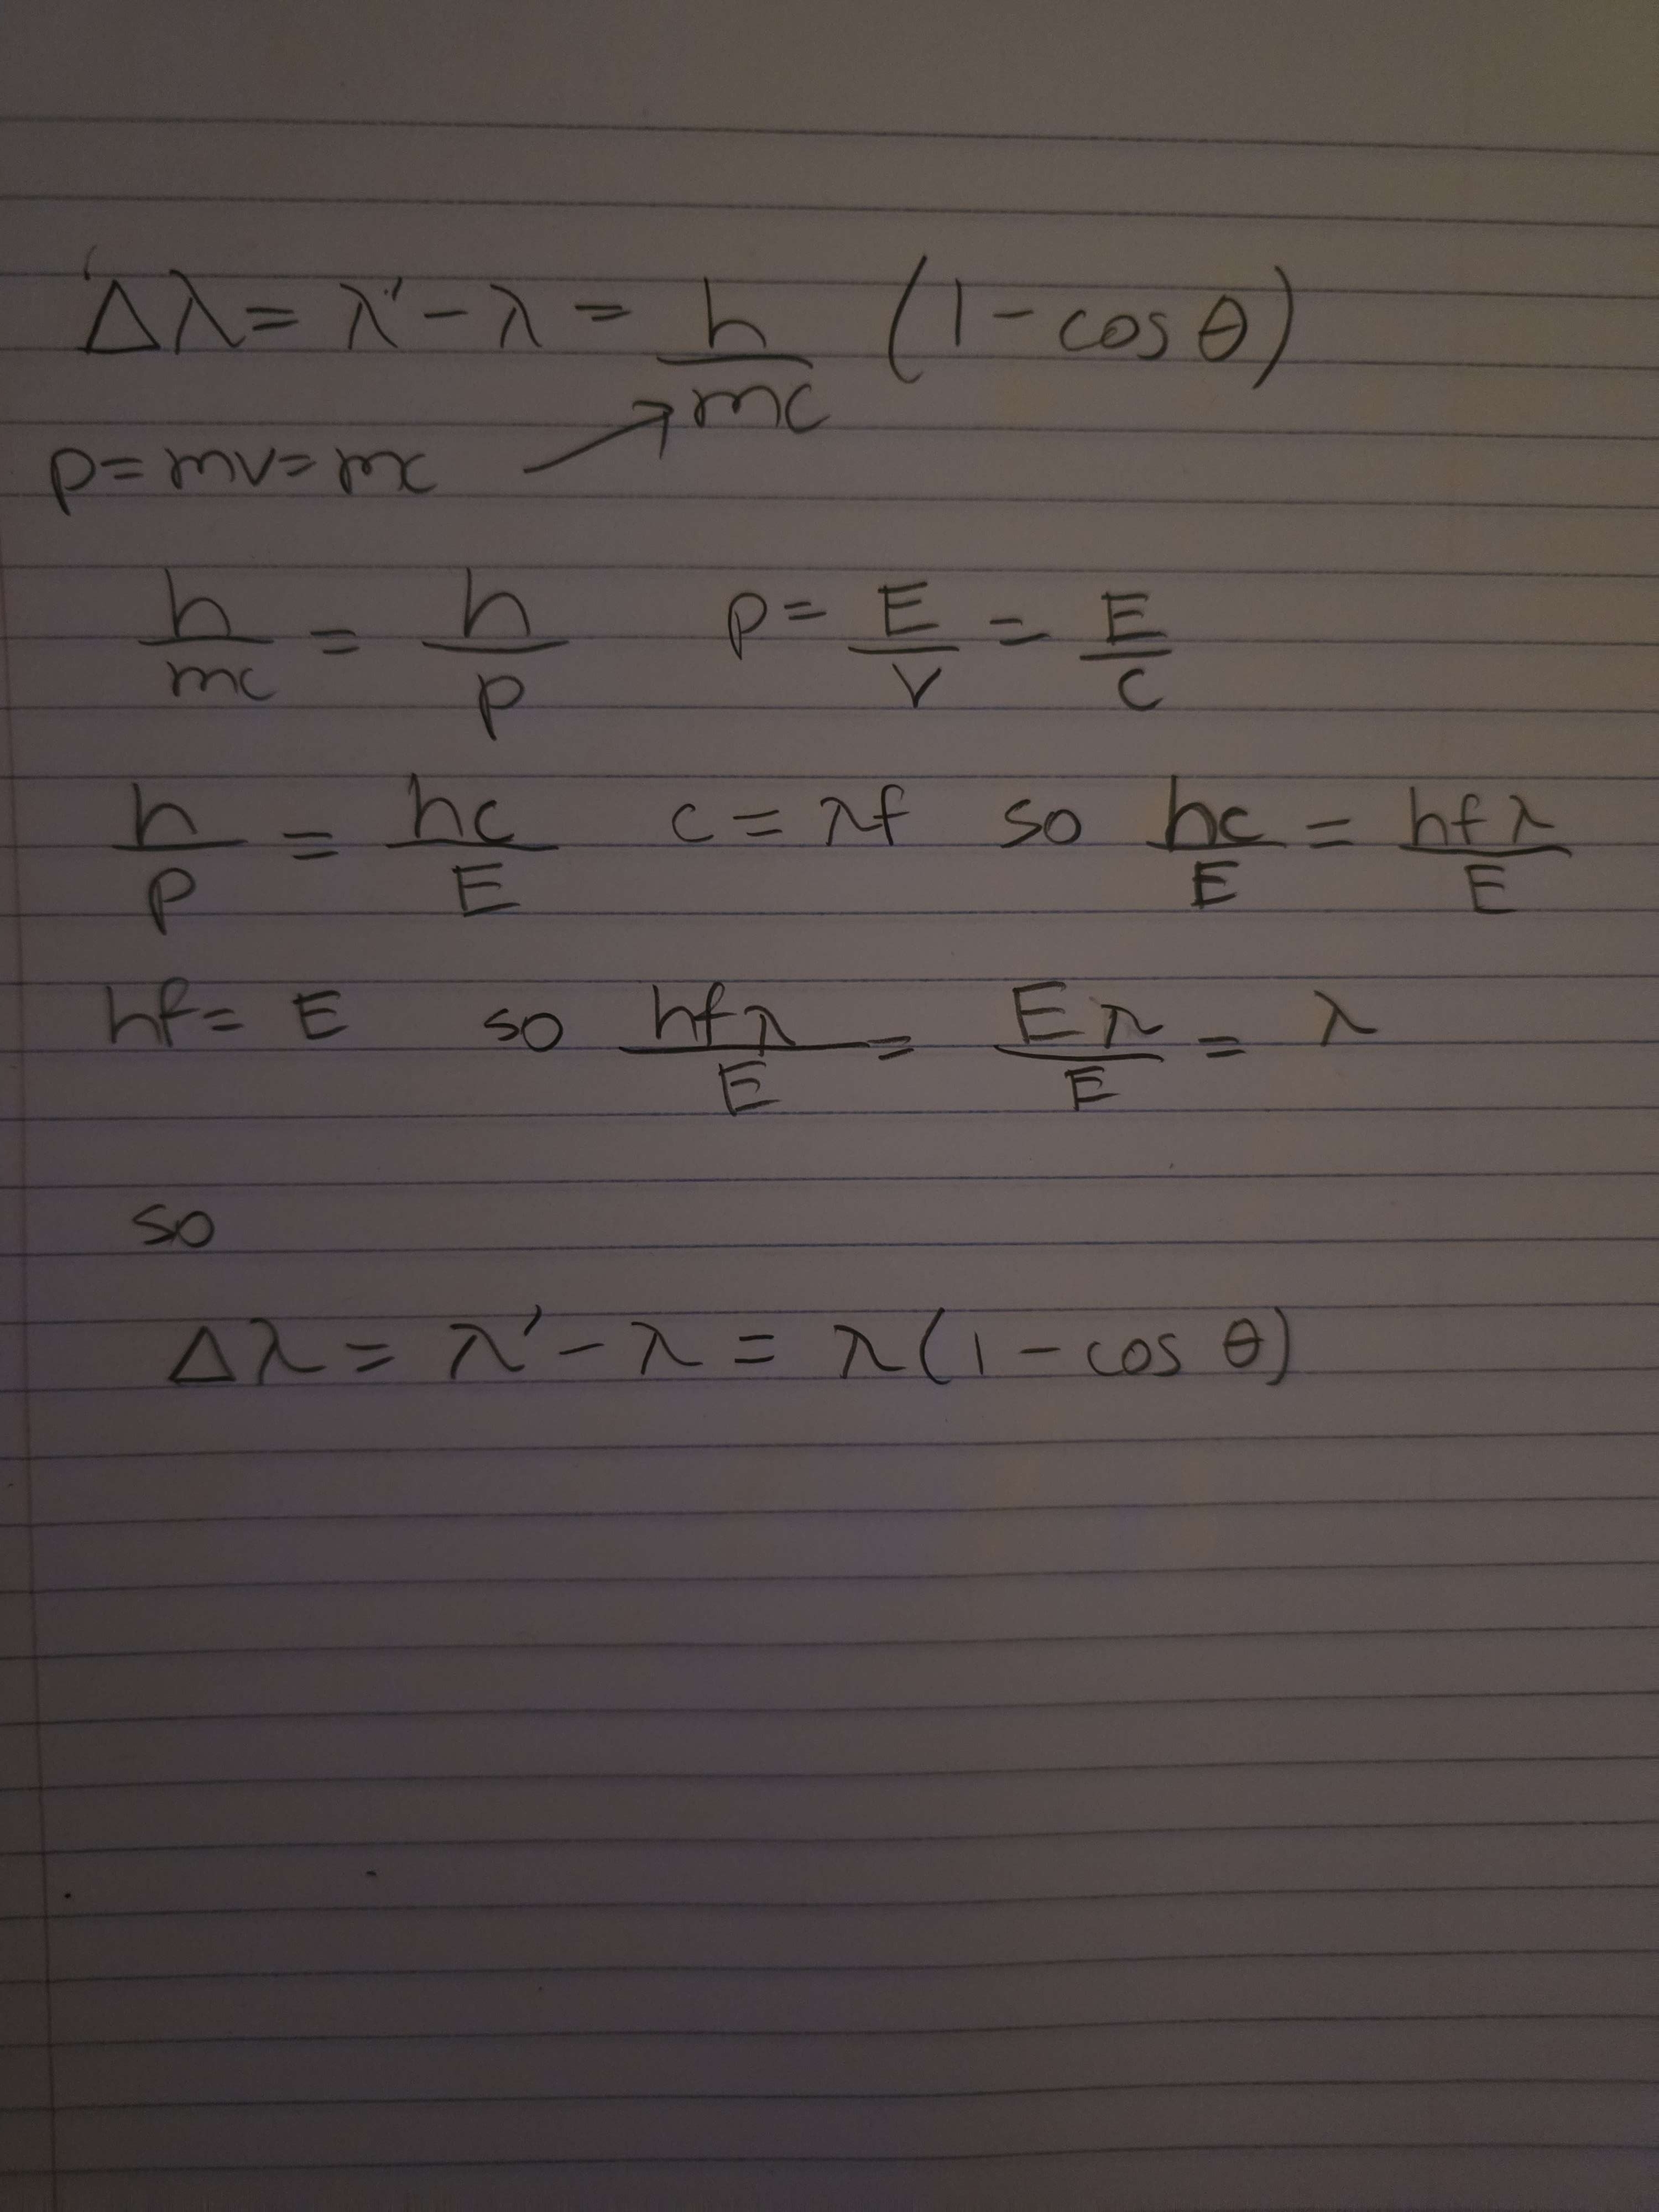 Δλ = λ' - λ = h/mc (1 - cos θ)
p = mv = mc →
h/mc = h/p p = E/v = E/c
h/p = hc/E c = λf so hc/E = hfλ/E
hf = E so hfλ/E = Eλ/E = λ
so
Δλ = λ' - λ = λ(1 - cos θ)